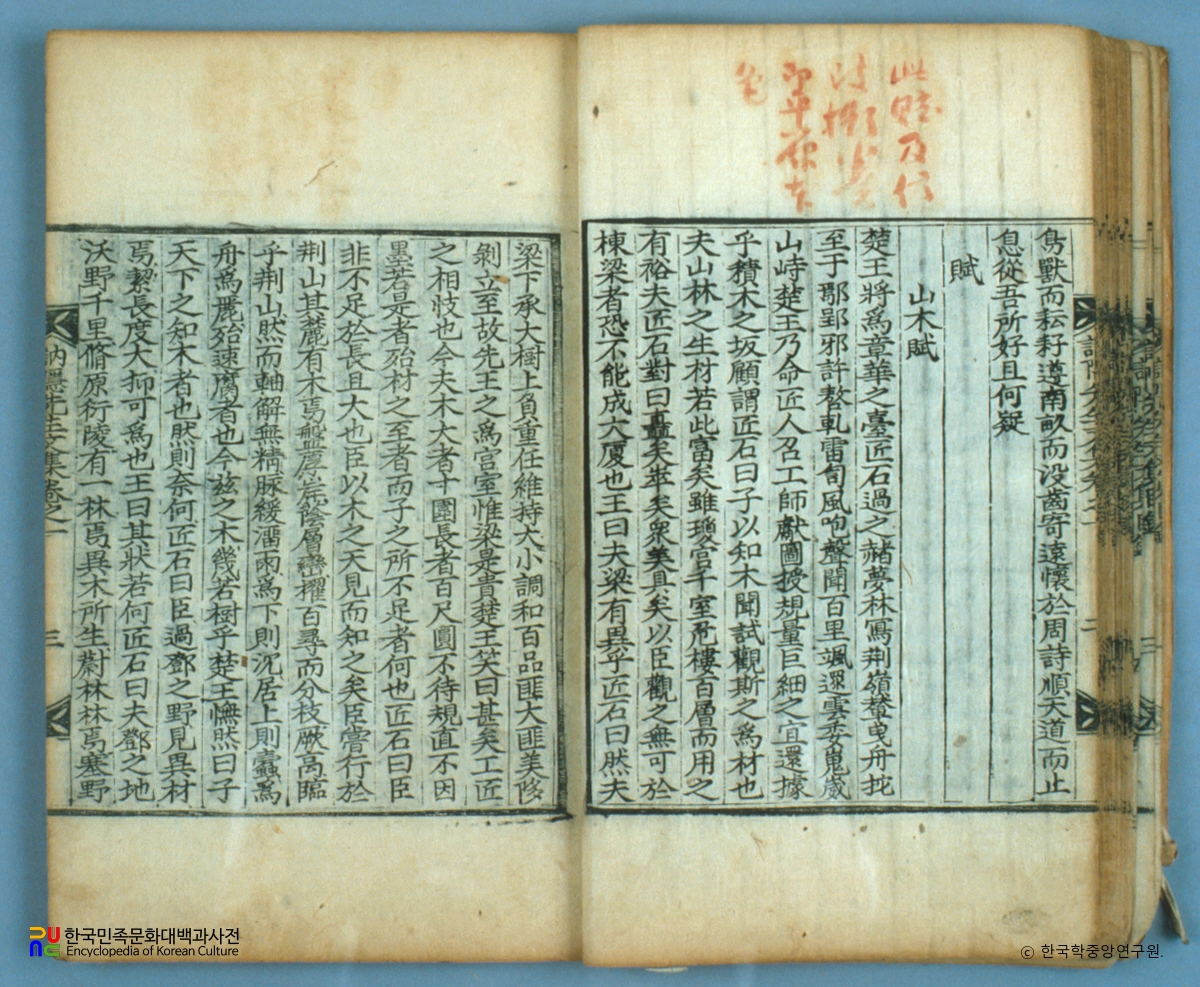 此賦及
鳥獸而耘耔遵南畝而没齒寄遠懷於周詩順天道而止
息從吾所好且何疑
賦
山木賦
楚王將爲章華之臺匠石過之赭夢林冩荆嶺輦曳舟拕
至于鄢郢邪許嗸軋雷訇風吼聲聞百里颯遝雲委嵬嵗
山峙楚王乃命匠人召工師獻圖授規量巨細之宜還據
乎積木之坂顧謂匠石曰子以知木聞試觀斯之爲材也
夫山林之生材若此富矣雖瓊宮千室危樓百層而用之
有裕夫匠石對曰矗矣萃矣衆美具矣以臣觀之無可於
棟梁者恐不能成大厦也王曰夫梁有異乎匠石曰然夫
梁下承大樹上負重任維持大小調和百品匪大匪美陊
剝立至故先王之爲宮室惟梁是貴楚王笑曰甚矣工匠
之相忮也今夫木大者十圍長者百尺圓不待規直不因
墨若是者殆材之至者而子之所不足者何也匠石曰臣
非不足於長且大也臣以木之天見而知之矣臣嘗行於
荆山其麓有木焉盤厚崖蔭層巒擢百尋而分枝厥高臨
乎荆山然而軸解無精脉緩濡雨爲下則沉居上則蠧爲
舟爲麗殆速腐者也今玆之木幾若樹乎楚王憮然曰子
天下之知木者也然則奈何匠石曰臣過鄧之野見異材
焉絜長度大抑可爲也王曰其狀若何匠石曰夫鄧之地
沃野千里脩原衍陵有一林焉異木所生蔚林林焉塞野
訥隱先生文集卷之一
三
한국민족문화대백과사전
Encyclopedia of Korean Culture
ⓒ 한국학중앙연구원.